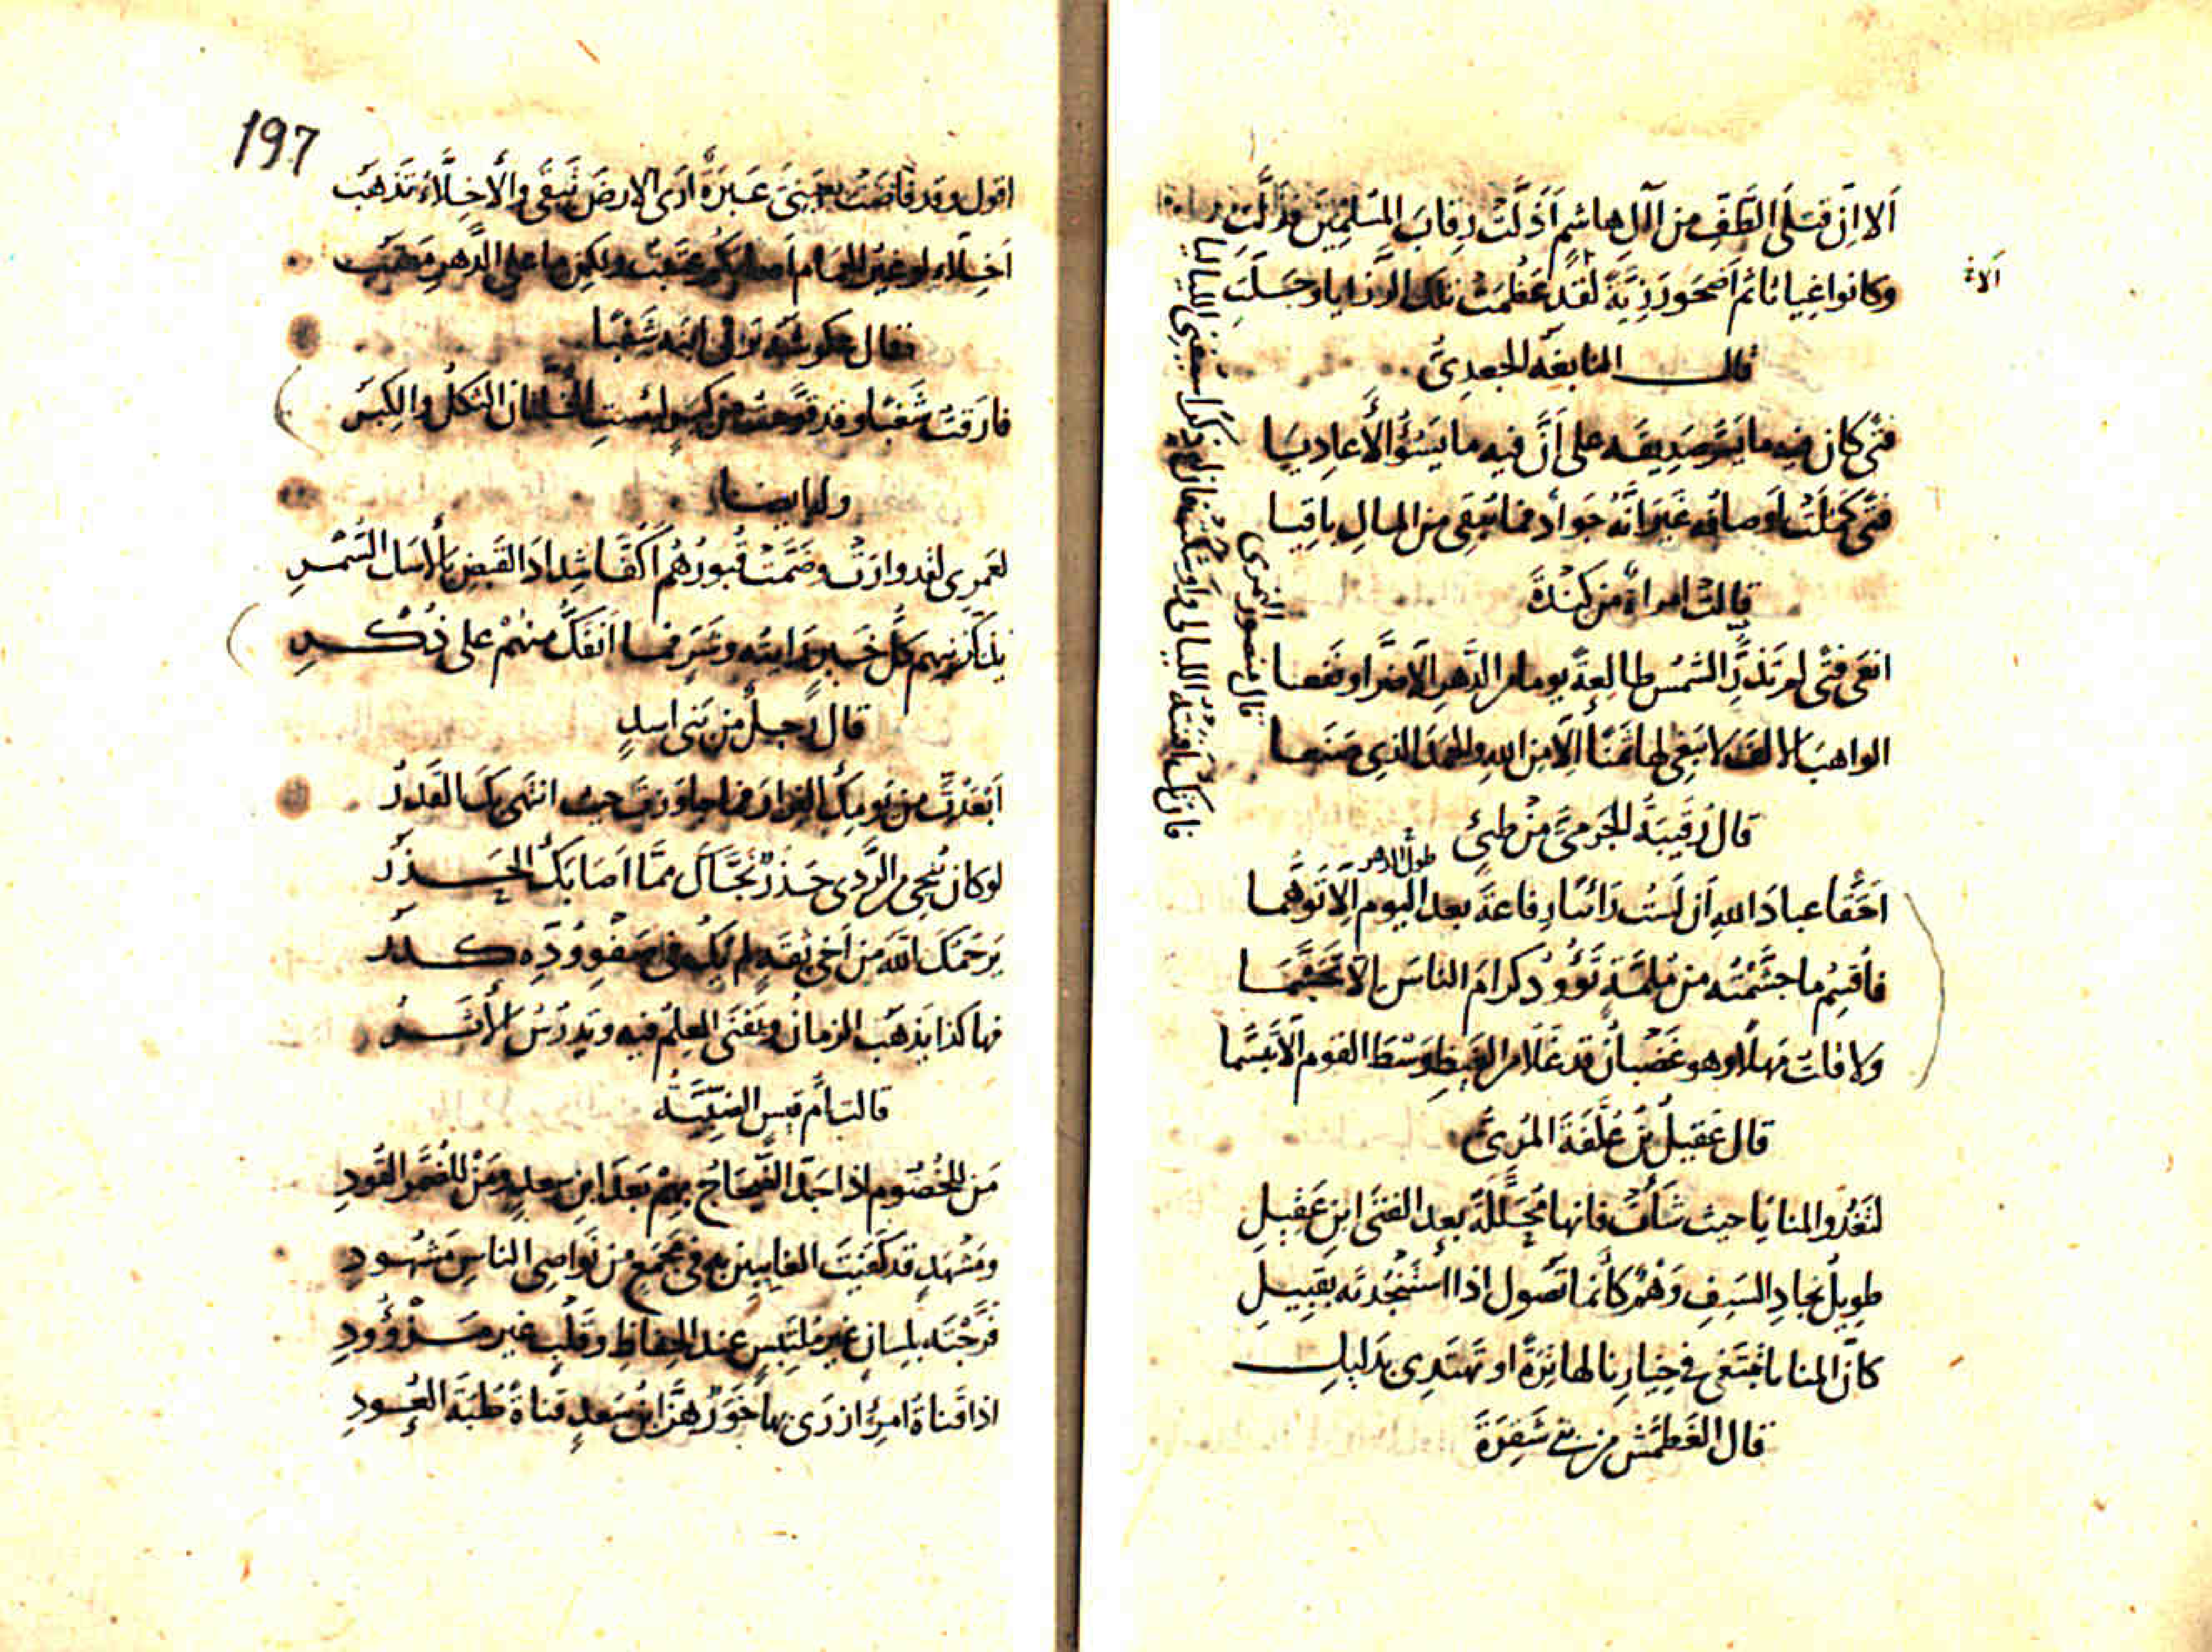 أَلا اِنَّ قتلَى الطَّفِّ من آلِ هاشمٍ أَذَلَّتْ رِقابَ المسلمينَ فذلَّتِ
وكانوا غِياثًا ثم أَضحَوا رَزِيَّةً لقد عَظُمَتْ تلك الرَّزايا وجَلَّتِ
قال النابغة الجعدِىُّ
فتًى كان فيه ما يَسُرُّ صديقَه على أَنَّ فيه ما يَسُؤْ الأَعاديَا
فتًى كَمُلَتْ أوصافُه غيرَ أَنَّهُ جَوادٌ فما يُبقى من المالِ باقيا
قالت امراةٌ من كِنْدَةَ
انعَى فتًى لم تَذُرَّ الشمسُ طالعةً يوما من الدَّهرِ اِلّا ضرَّ او نفعا
الواهبَ الالفَ لا يَبغى لها ثمنًا اِلّا من اللهِ والحمدَ الذى صنعا
قال رُقَيبَةُ الجَرمىُّ من طيئٍ
أَحَقًّا عبادَ اللهِ أن لَستُ رائيًا رِفاعةَ بعد اليومِ اِلّا توَهُّما
طولَ الدهر
فأُقسِمُ ما جَشَّمْتُه من مُلِمَّةٍ تَؤُوْدُ كرامَ الناسِ اِلّا تَجَشَّمَا
ولا قلت مَهلًا وهو غَضبانُ قد غَلا من الغيظِ وَسْطَ القومِ اِلّا تبسَّما
قال عَقيلُ بنُ عُلَّفَةَ المُرىُّ
لتَغْدُ والمنايَا حيث شَاءَتْ فانها مُحَلَّلَةٌ بعد الفتَى ابنِ عَقيلِ
طويلُ نجادِ السَيفِ وَهْمٌ كأنما تصول اذا استَنْجَدتَه بقَبيلِ
كأنَّ المنايا تبتغى فى خيارِنا لها تِرَةً او تهتدِى بدَليلِ
قال الغَطَمَّش من بنى شَقِرَةَ
الا ن
قال منصور النمرى
197
اقول وقد فاضَت بعينىَ عَبرَةٌ أرَى الارضَ تَبقَى والأَخِلَّاءُ تَذهَب
أَخِلَّاءِ لو غيرُ الحمامِ أصابكم عتَبتُ ولكن ما على الدَّهرِ مَعتَب
فقال عكرشة يرثى ابنه شَغبًا
فارَقت شَغبًا وقد قوَّستُ من كِبَرٍ لبئستِ الخلتان الثكلُ والكِبَرُ
وله ايضا
لعَمرِى لقد وارَتْ وضَمَّت قُبورُهُم أَكُفًّا شِدادَ القَبضِ بالأسَل السُّمْرِ
يذكّرنيهم كلُّ خَيرٍ رَايتُه وشَرٍّ فما أنفَكُّ منهُمْ على ذُكْرِ
قال رجلٌ من بنى اسدٍ
أَبْعَدْتَ من يَومِكَ الفِرارَ فما جاوزتَ حيث انتهى بكَ القَدَرُ
لو كان يُنجى من الرَّدى حَذَرٌ نَجَّاكَ ممَّا أَصَابَكَ الحَذَرُ
يَرحَمُكَ اللهُ من أخى ثِقَةٍ لم يَكُ فى صَفْوِ وُدِّهِ كَدَرُ
فهاكذا يَذهَبُ الزمانُ ويَفنَى العلمُ فيه ويَدرُسُ الأَثَرُ
قالت أُم قيس الضَّبِّيَّةُ
مَن للخُصُومِ اذا جَدَّ الضِّجَاجُ بهِمْ بَعدَ ابنِ سعدٍ ومَنْ للضُمَّرِ القُودِ
ومَشْهَدٍ قد كَفَيتَ الغايبين به فى مَجمَعٍ من نَواصى الناسِ مَشهُودِ
فَرَّجْتَه بلِسانٍ غير مُلتَبِسٍ عند الحِفاظِ وقَلبٍ غير مَزْؤُودِ
اذا قَناةَ امرِئٍ ازرَى بها خَوَرٌ هَزَّ ابنُ سَعدٍ قناةً صُلبَةَ العُودِ